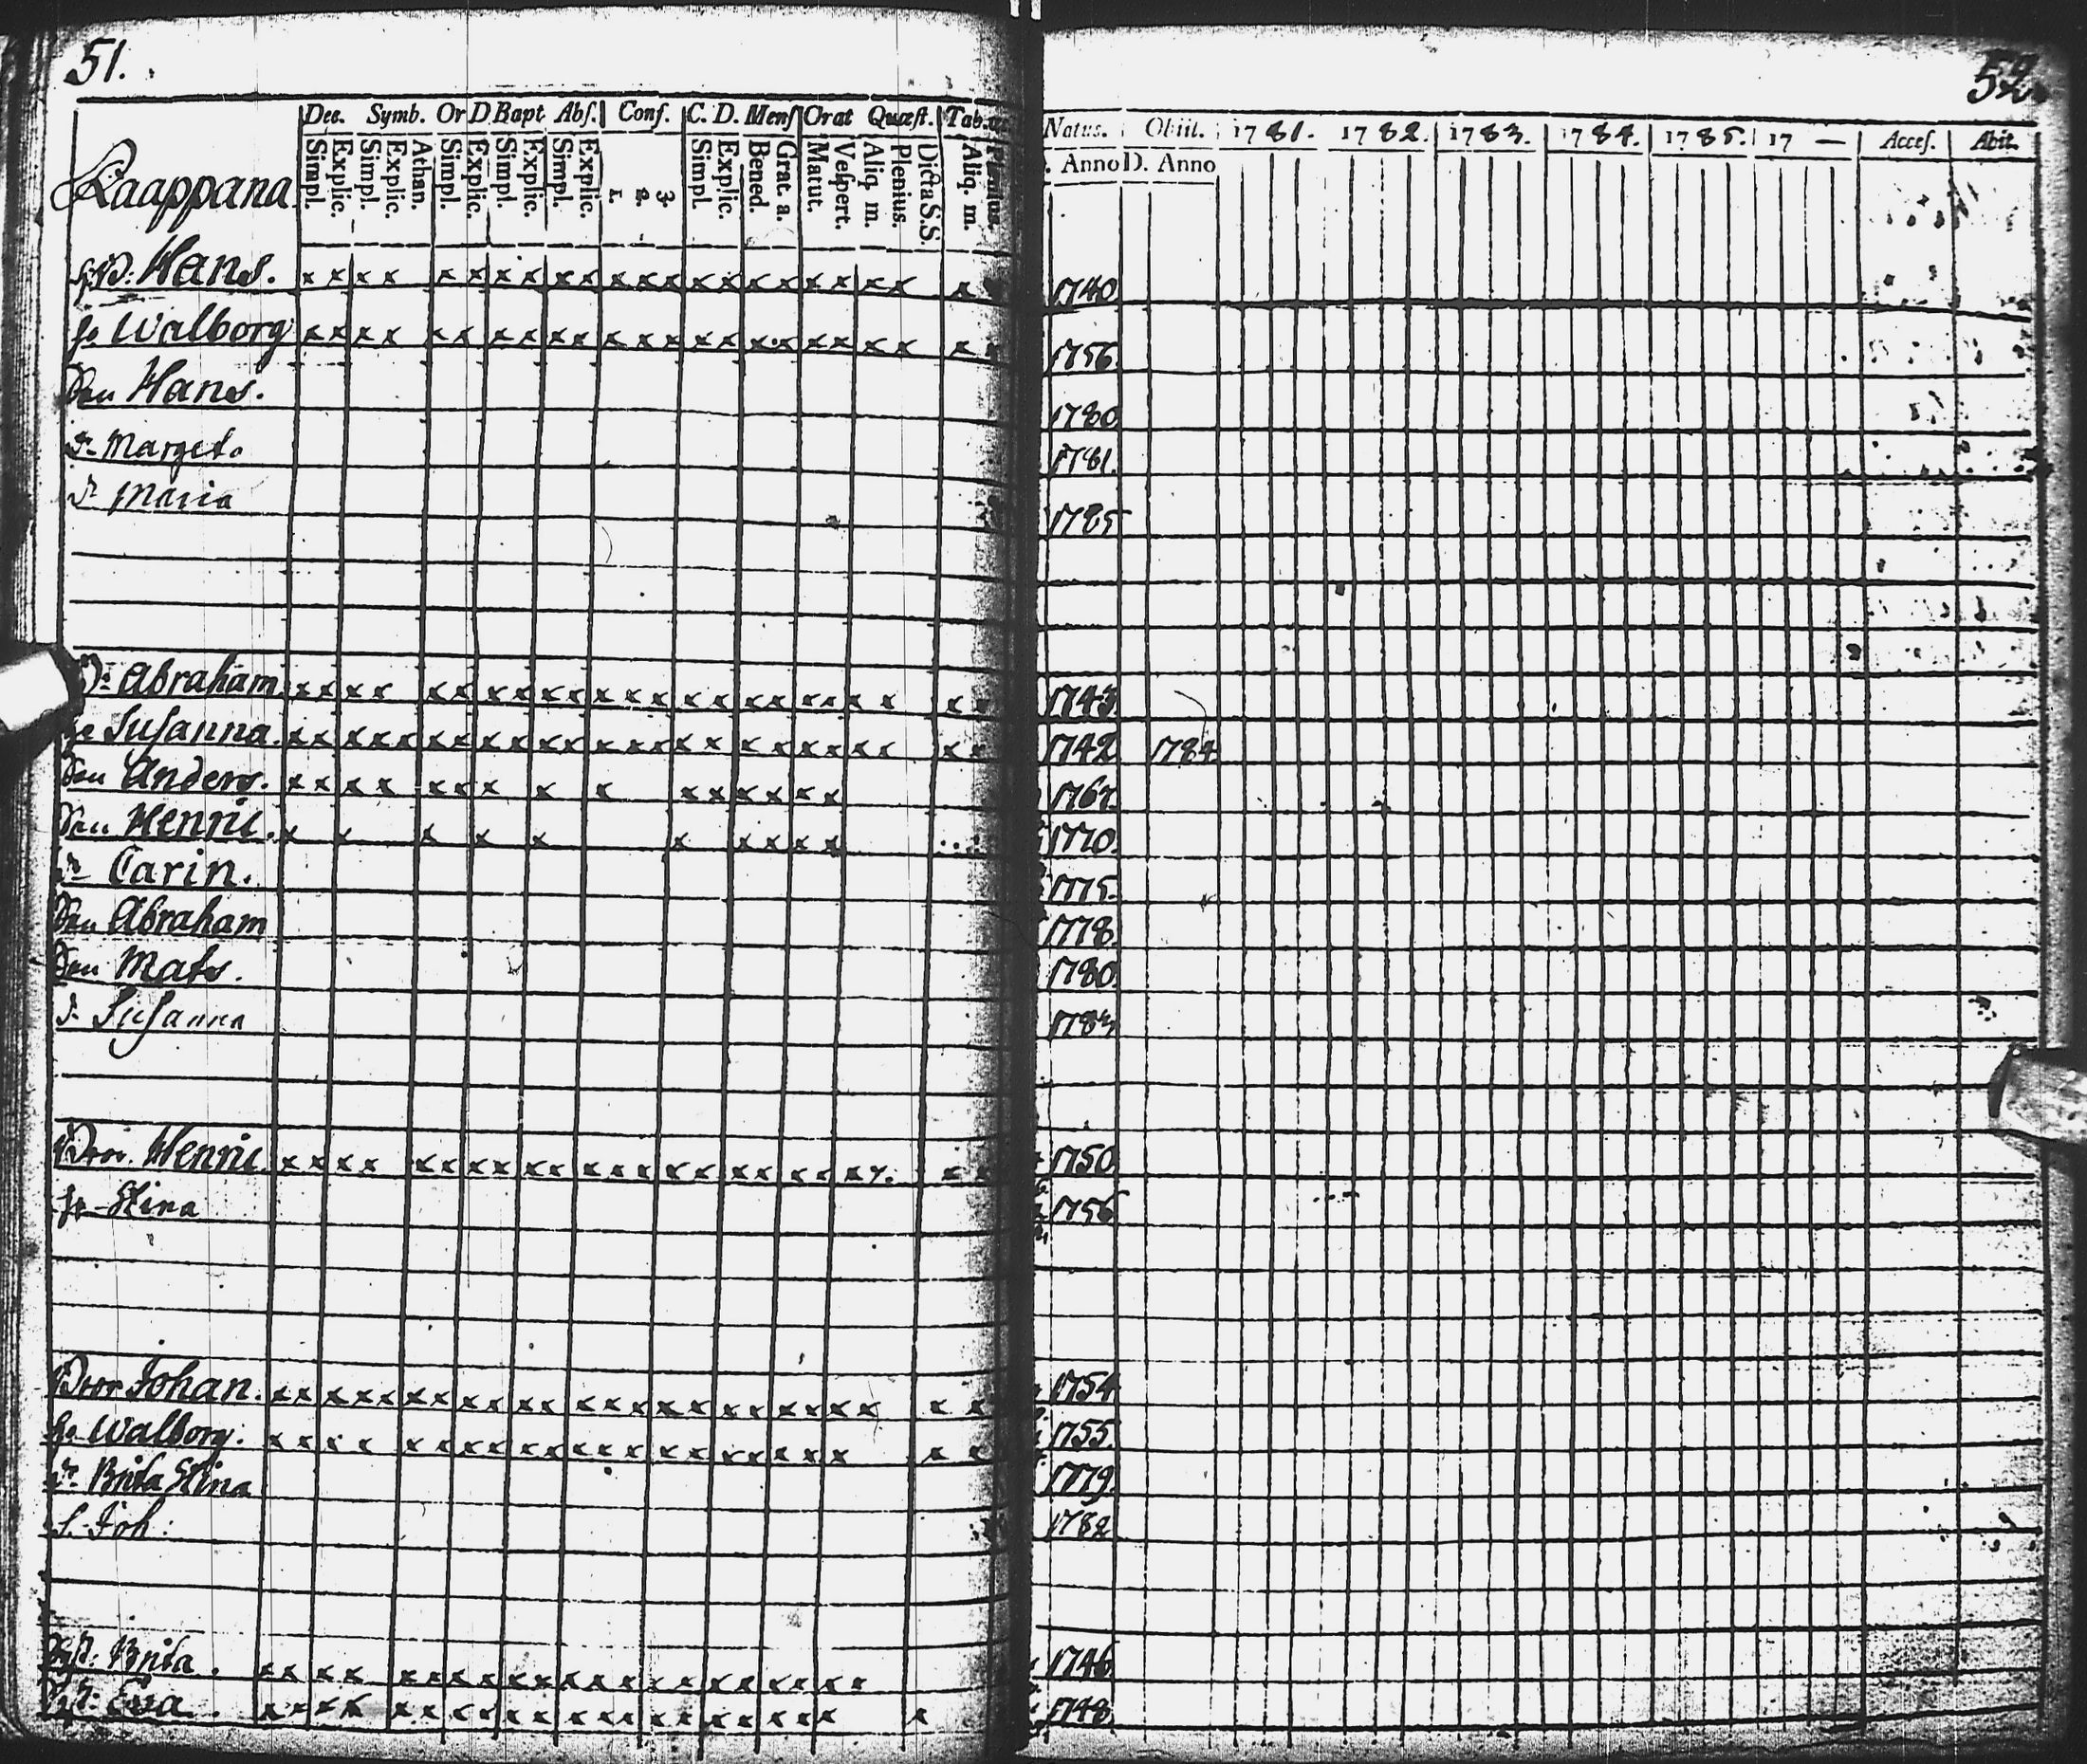 51.
52.
Dec. Symb. Or D Bapt Abſ. Conf. C. D. Menſ Orat Quæſt. Tab.
Simpl. Explic. Simpl. Explic. Athan. Simpl. Explic. Simpl. Explic. Simpl. Explic. 1. 2. 3. Simpl. Explic. Bened. Grat. a. Matut. Veſpert. Aliq. m. Plenius. Dicta S.S. Aliq. m. Plenius.
Natus. Obiit. 1781. 1782. 1783. 1784. 1785. 17 — Acceſ. Abit.
Anno D. Anno
Kaappana
Hans. x x x x x x x x x x x x x x x x x x x x x x x 1740
h. Walborg x x x x x x x x x x x x x x x x x x x x x x x 1756.
Son Hans. 1780
dr Marget. 1781.
dr Maria 1785
Abraham x x x x x x x x x x x x x x x x x x x x x x x 1743.
Susanna. x x x x x x x x x x x x x x x x x x x x x x x x 1742 1784
Son Anders. x x x x x x x x x x x x x x x 1767.
Son Henric. x x x x x x x x x x 1770.
dr Carin. 1775.
Son Abraham 1778.
Son Mats. 1780.
dr Susanna 1783
Bror. Henric x x x x x x x x x x x x x x x x x x x x x x x 1750
h. Stina 1756
Bror Johan. x x x x x x x x x x x x x x x x x x x x x x x x 1754
h. Walborg. x x x x x x x x x x x x x x x x x x x x x x x 1755.
dr Brita Stina 1779.
S. Joh: 1782
Brita. x x x x x x x x x x x x x x x x x x x x x 1746
Eva. x x x x x x x x x x x x x x x x x x x x x 1748